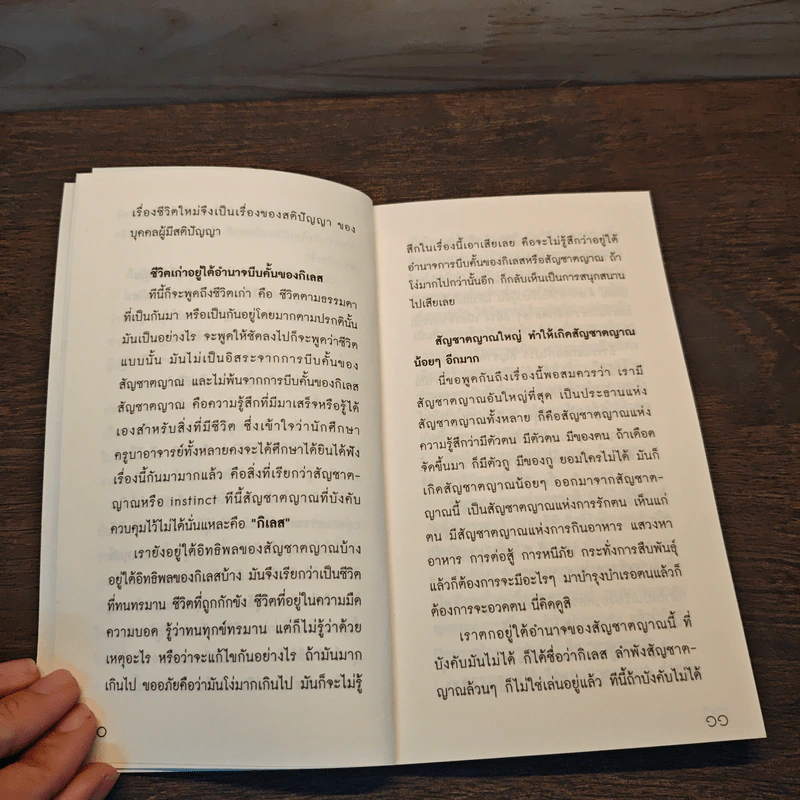 เรื่องชีวิตใหม่จึงเป็นเรื่องของสติปัญญา ของ
บุคคลผู้มีสติปัญญา
ชีวิตเก่าอยู่ใต้อำนาจบีบคั้นของกิเลส
ทีนี้ก็จะพูดถึงชีวิตเก่า คือ ชีวิตตามธรรมดา
ที่เป็นกันมา หรือเป็นกันอยู่โดยมากตามปรกตินั้น
มันเป็นอย่างไร จะพูดให้ชัดลงไปก็จะพูดว่าชีวิต
แบบนั้น มันไม่เป็นอิสระจากการบีบคั้นของ
สัญชาตญาณ และไม่พ้นจากการบีบคั้นของกิเลส
สัญชาตญาณ คือความรู้สึกที่มีมาเสร็จหรือรู้ได้
เองสำหรับสิ่งที่มีชีวิต ซึ่งเข้าใจว่านักศึกษา
ครูบาอาจารย์ทั้งหลายคงจะได้ศึกษาได้ยินได้ฟัง
เรื่องนี้กันมามากแล้ว คือสิ่งที่เรียกว่าสัญชาต-
ญาณหรือ instinct ทีนี้สัญชาตญาณที่บังคับ
ควบคุมไว้ไม่ได้นั่นแหละคือ "กิเลส"
เรายังอยู่ใต้อิทธิพลของสัญชาตญาณบ้าง
อยู่ใต้อิทธิพลของกิเลสบ้าง มันจึงเรียกว่าเป็นชีวิต
ที่ทนทรมาน ชีวิตที่ถูกกักขัง ชีวิตที่อยู่ในความมืด
ความบอด รู้ว่าทนทุกข์ทรมาน แต่ก็ไม่รู้ว่าด้วย
เหตุอะไร หรือว่าจะแก้ไขกันอย่างไร ถ้ามันมาก
เกินไป ขออภัยคือว่ามันโง่มากเกินไป มันก็จะไม่รู้
๐
สึกในเรื่องนี้เอาเสียเลย คือจะไม่รู้สึกว่าอยู่ใต้
อำนาจการบีบคั้นของกิเลสหรือสัญชาตญาณ ถ้า
โง่มากไปกว่านั้นอีก ก็กลับเห็นเป็นการสนุกสนาน
ไปเสียเลย
สัญชาตญาณใหญ่ ทำให้เกิดสัญชาตญาณ
น้อยๆ อีกมาก
นี่ขอพูดกันถึงเรื่องนี้พอสมควรว่า เรามี
สัญชาตญาณอันใหญ่ที่สุด เป็นประธานแห่ง
สัญชาตญาณทั้งหลาย ก็คือสัญชาตญาณแห่ง
ความรู้สึกว่ามีตัวตน มีตัวตน มีของตน ถ้าเดือด
จัดขึ้นมา ก็มีตัวกู มีของกู ยอมใครไม่ได้ มันก็
เกิดสัญชาตญาณน้อยๆ ออกมาจากสัญชาต-
ญาณนี้ เป็นสัญชาตญาณแห่งการรักตน เห็นแก่
ตน มีสัญชาตญาณแห่งการกินอาหาร แสวงหา
อาหาร การต่อสู้ การหนีภัย กระทั่งการสืบพันธุ์
แล้วก็ต้องการจะมีอะไรๆ มาบำรุงบำเรอตนแล้วก็
ต้องการจะอวดตน นี่คิดดูสิ
เราตกอยู่ใต้อำนาจของสัญชาตญาณนี้ ที่
บังคับมันไม่ได้ ก็ได้ชื่อว่ากิเลส ลำพังสัญชาต-
ญาณล้วนๆ ก็ไม่ใช่เล่นอยู่แล้ว ทีนี้ถ้าบังคับไม่ได้
๑๑